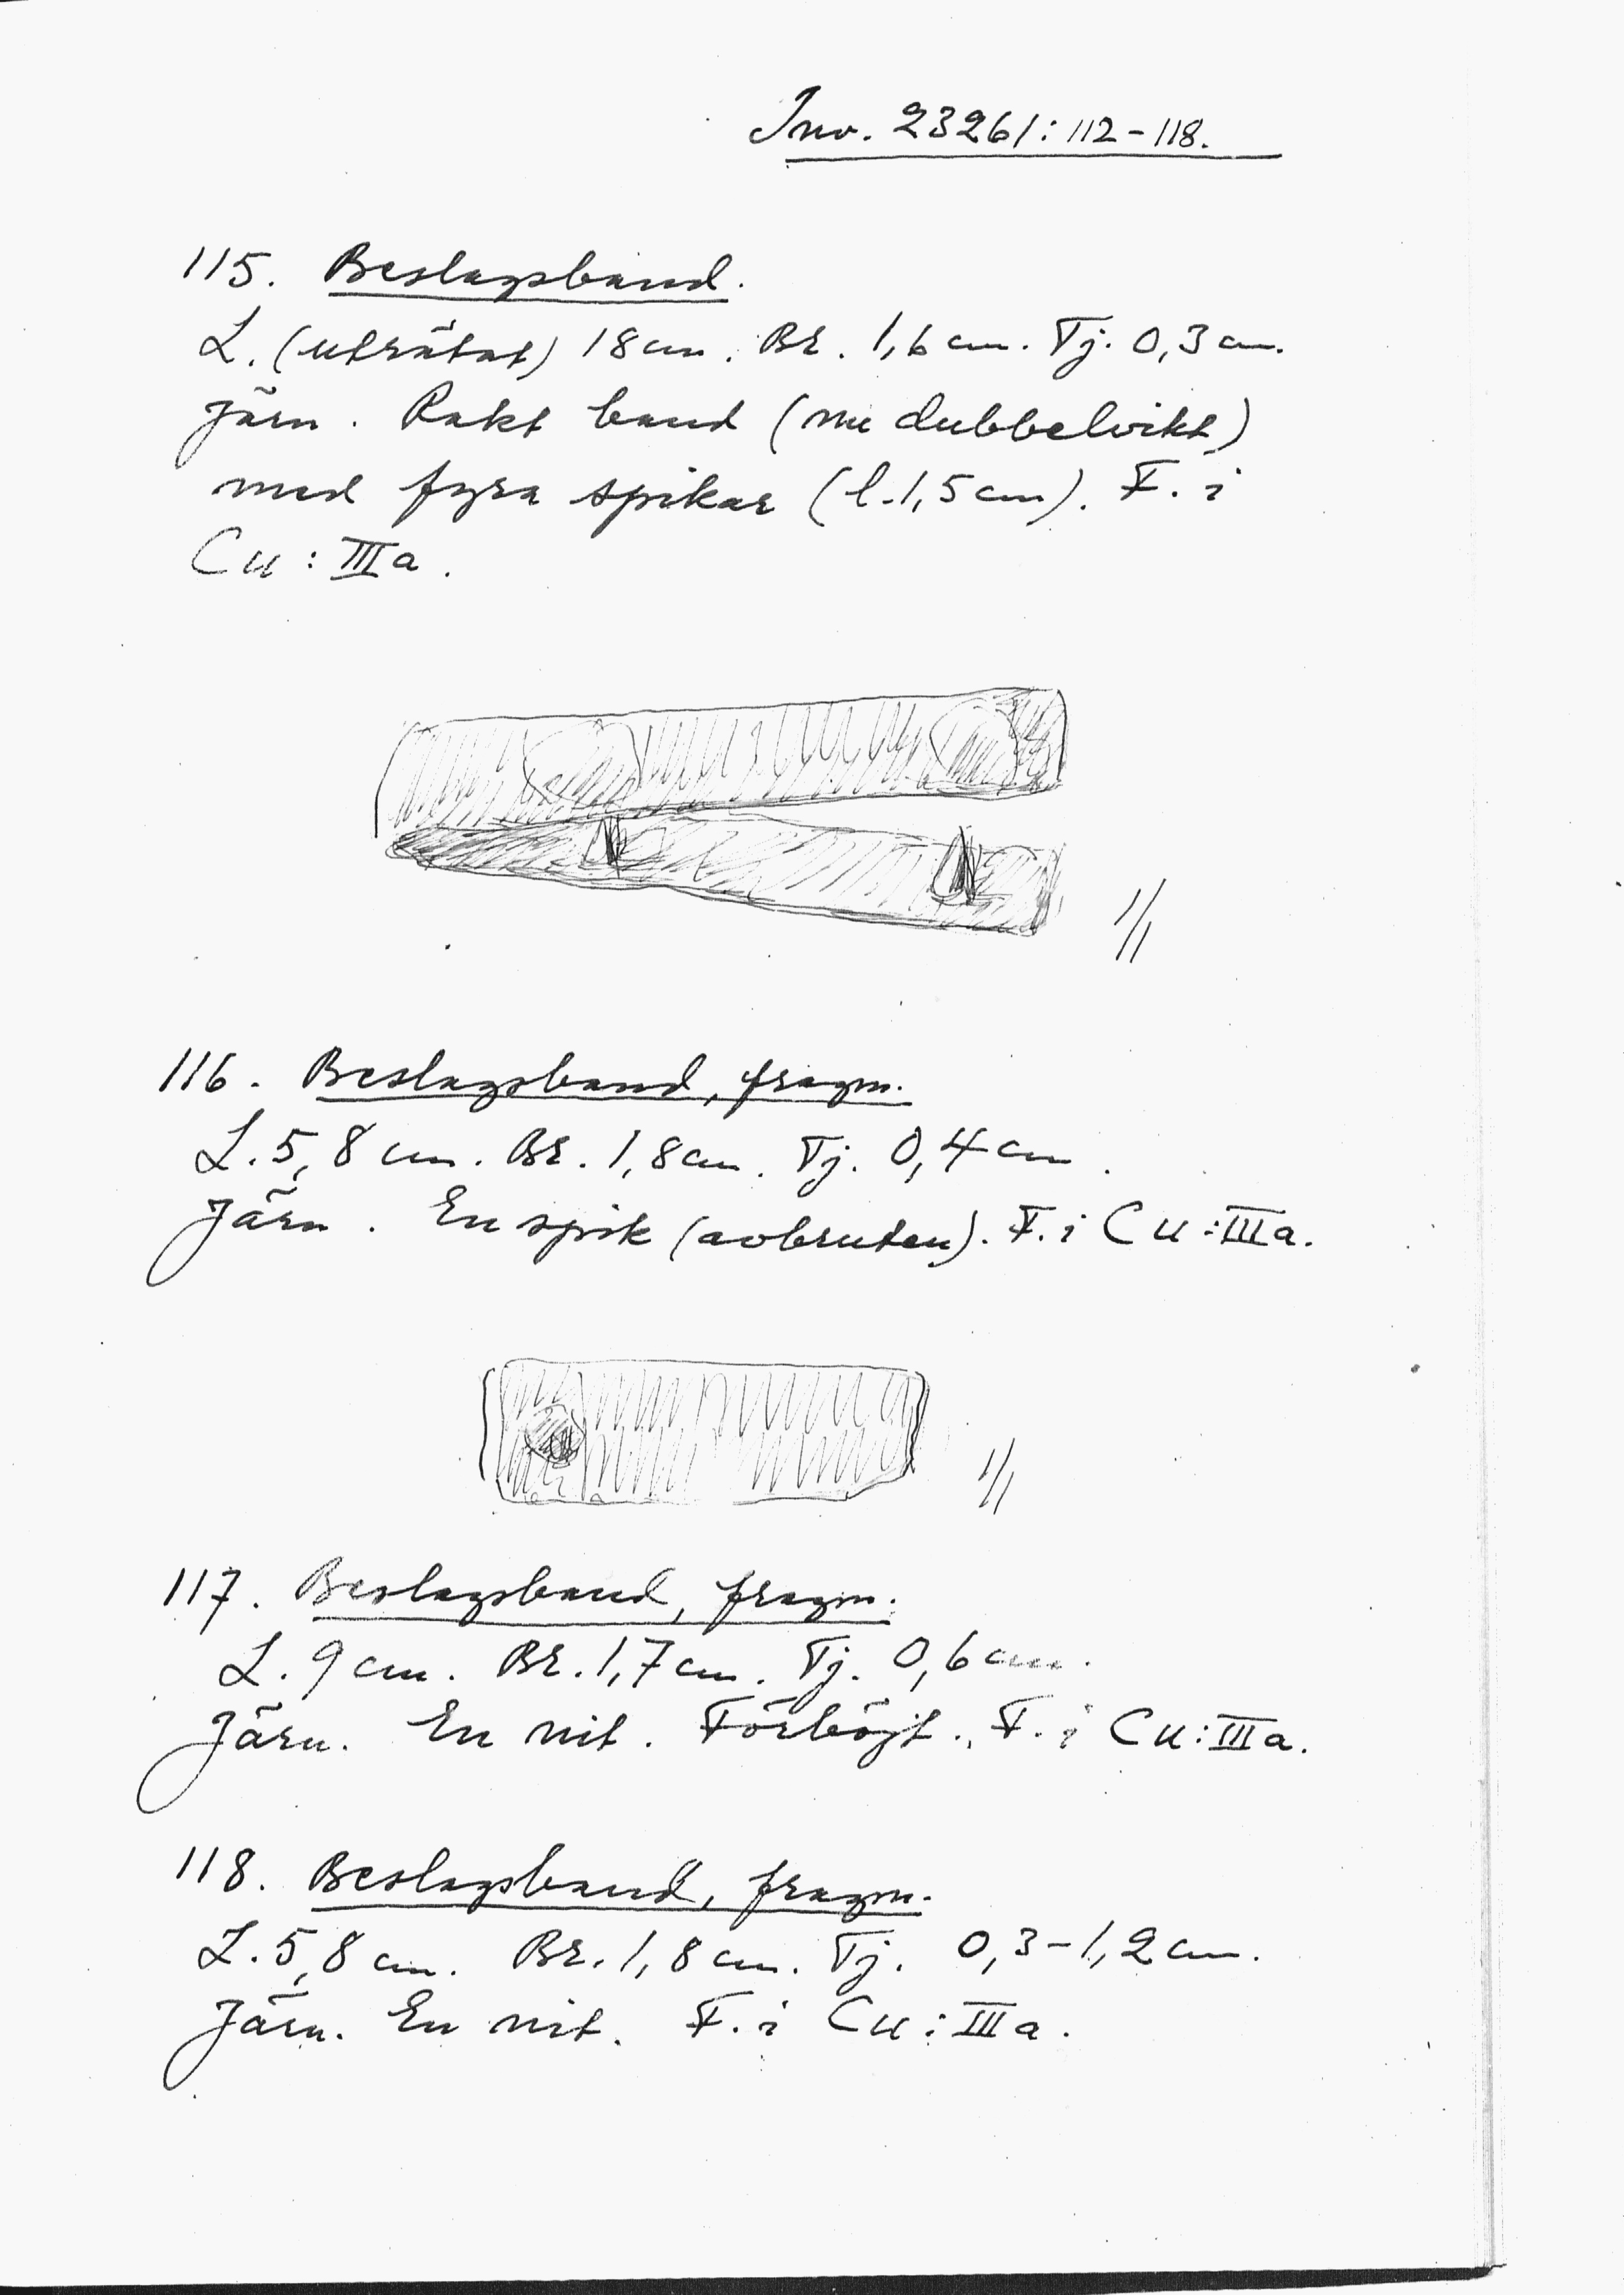 Inv. 23261:112-118.
115. Beslagsband.
L. (uträtat) 18 cm. Br. 1,6 cm. Tj. 0,3 cm.
Järn. Rakt band (nu dubbelvikt)
med fyra spikar (l. 1,5 cm). F. i
Cu : IIIa.
1/1
116. Beslagsband, fragm.
L. 5,8 cm. Br. 1,8 cm. Tj. 0,4 cm.
Järn. En spik (avbruten). F. i Cu : IIIa.
1/1
117. Beslagsband, fragm.
L. 9 cm. Br. 1,7 cm. Tj. 0,6 cm.
Järn. En nit. Förböjt. F. i Cu : IIIa.
118. Beslagsband, fragm.
L. 5,8 cm. Br. 1,8 cm. Tj. 0,3-1,2 cm.
Järn. En nit. F. i Cu : IIIa.